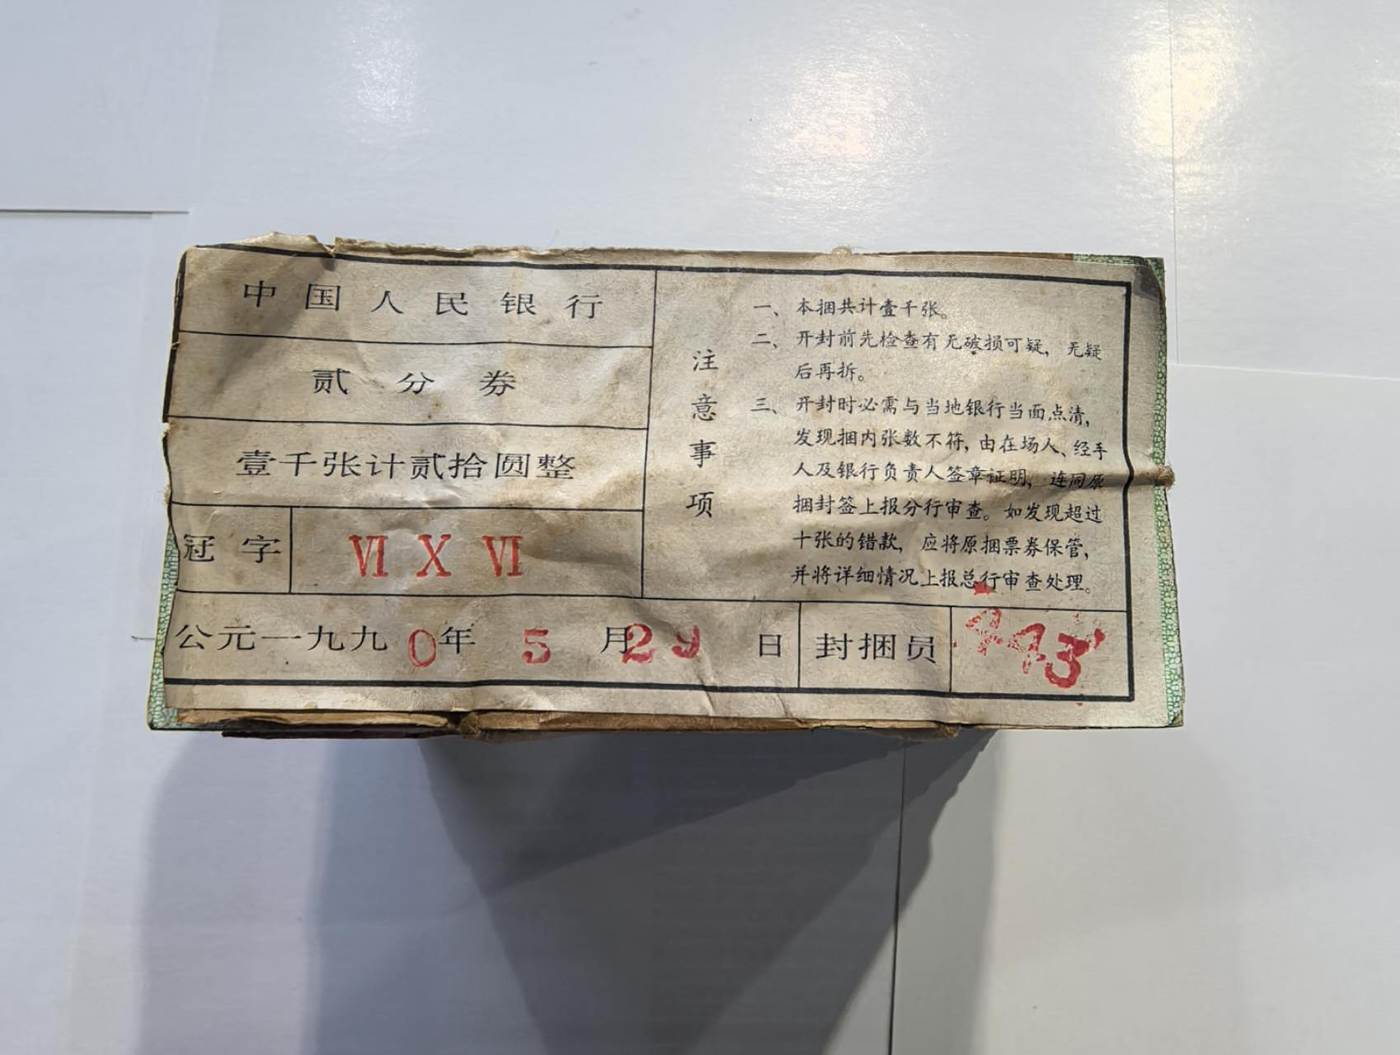 中国人民银行
贰分券
壹千张计贰拾圆整
冠字 ⅥⅩⅥ
注意事项
一、本捆共计壹千张。
二、开封前先检查有无破损可疑，无疑
后再拆。
三、开封时必需与当地银行当面点清，
发现捆内张数不符，由在场人、经手
人及银行负责人签章证明，连同原
捆封签上报分行审查。如发现超过
十张的错款，应将原捆票券保管，
并将详细情况上报总行审查处理。
公元一九九0年 5月29日 封捆员